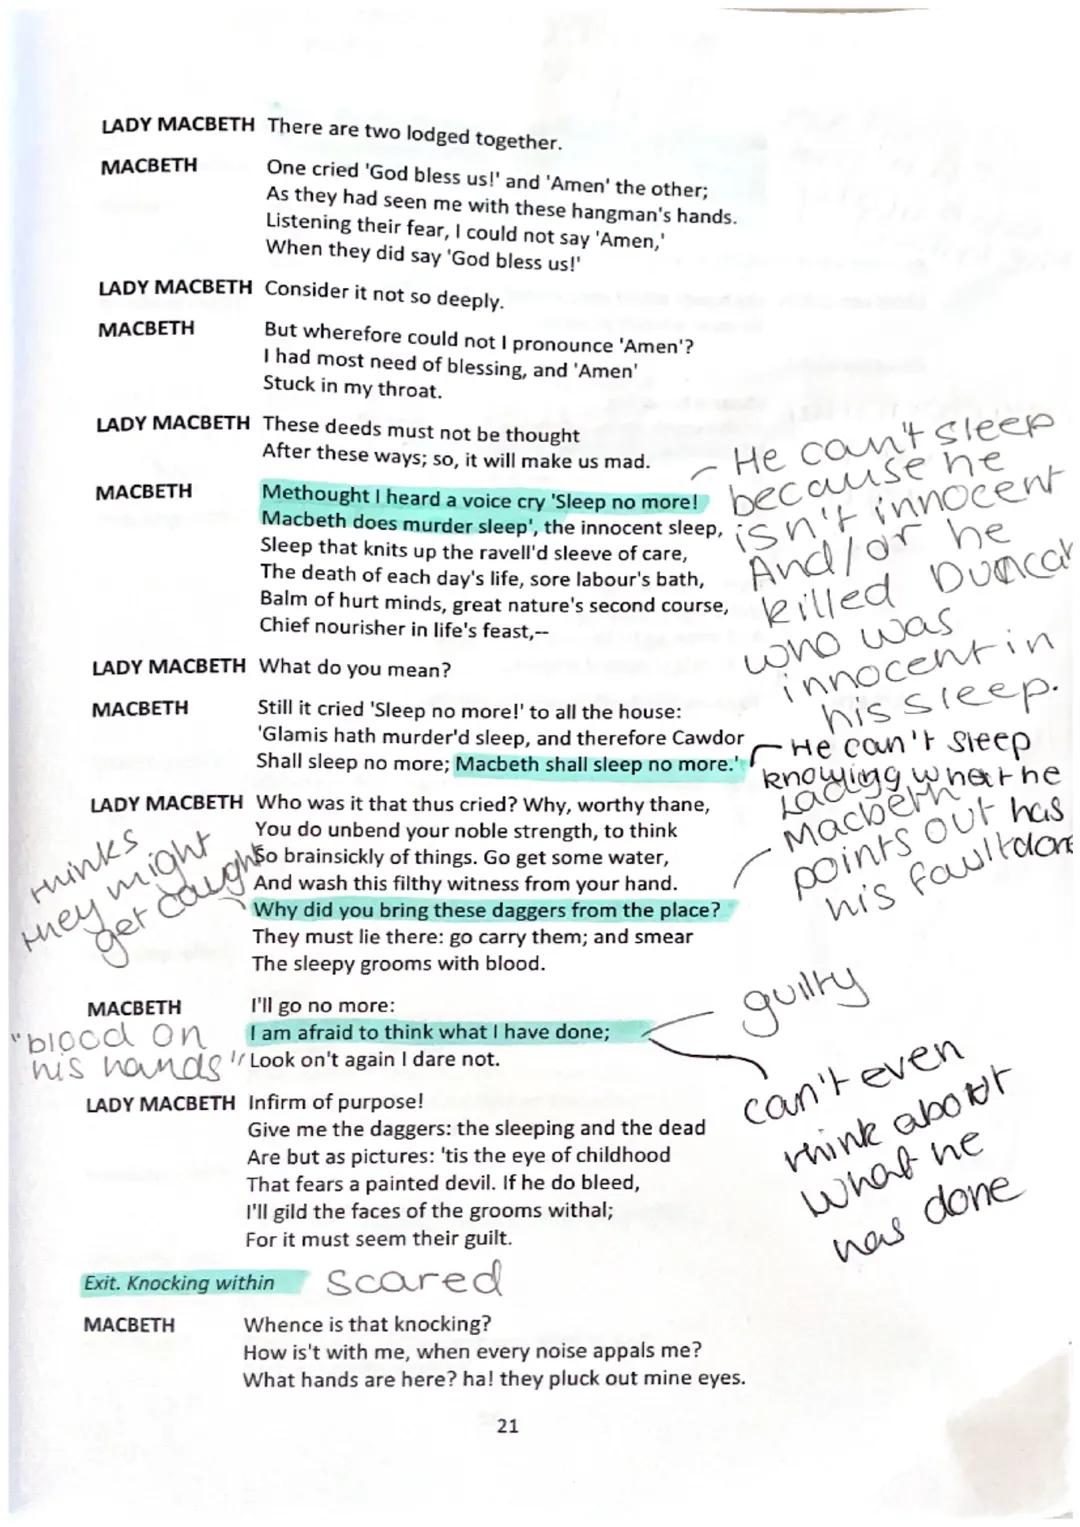 LADY MACBETH There are two lodged together.
MACBETH One cried 'God bless us!' and 'Amen' the other;
As they had seen me with these hangman's hands.
Listening their fear, I could not say 'Amen,'
When they did say 'God bless us!'
LADY MACBETH Consider it not so deeply.
MACBETH But wherefore could not I pronounce 'Amen'?
I had most need of blessing, and 'Amen'
Stuck in my throat.
LADY MACBETH These deeds must not be thought
After these ways; so, it will make us mad.
MACBETH Methought I heard a voice cry 'Sleep no more!
Macbeth does murder sleep', the innocent sleep,
Sleep that knits up the ravell'd sleeve of care,
The death of each day's life, sore labour's bath,
Balm of hurt minds, great nature's second course,
Chief nourisher in life's feast,--
He can't sleep
because he
isn't innocent
And/or he
killed Duncan
who was
innocent in
his sleep.
LADY MACBETH What do you mean?
MACBETH Still it cried 'Sleep no more!' to all the house:
'Glamis hath murder'd sleep, and therefore Cawdor
Shall sleep no more; Macbeth shall sleep no more.'
He can't sleep
knowing what he
has done
LADY MACBETH Who was it that thus cried? Why, worthy thane,
You do unbend your noble strength, to think
So brainsickly of things. Go get some water,
And wash this filthy witness from your hand.
Why did you bring these daggers from the place?
They must lie there: go carry them; and smear
The sleepy grooms with blood.
thinks
they might
get caught
Lady
Macbeth
points out
his fault
MACBETH I'll go no more:
I am afraid to think what I have done;
Look on't again I dare not.
"blood on
his hands"
guilty
can't even
think about
what he
has done
LADY MACBETH Infirm of purpose!
Give me the daggers: the sleeping and the dead
Are but as pictures: 'tis the eye of childhood
That fears a painted devil. If he do bleed,
I'll gild the faces of the grooms withal;
For it must seem their guilt.
Exit. Knocking within
scared
MACBETH Whence is that knocking?
How is't with me, when every noise appals me?
What hands are here? ha! they pluck out mine eyes.
21